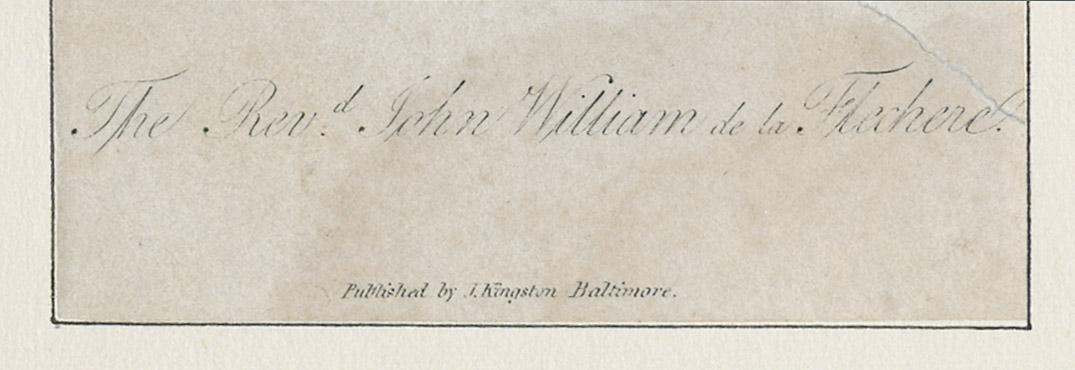 The Rev.d John William de la Flechere.
Published by J. Kingston Baltimore.